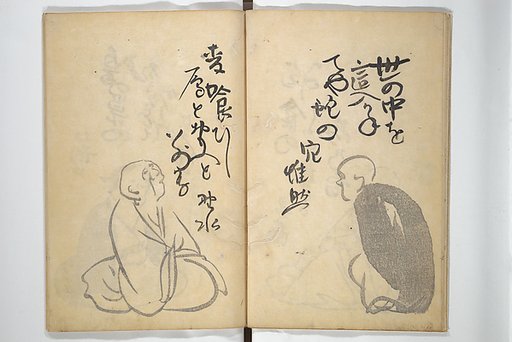 世の中を
這入かね
てや蛇の
穴
惟然
麦喰ひし
雁と思へと
わかれ哉
野水